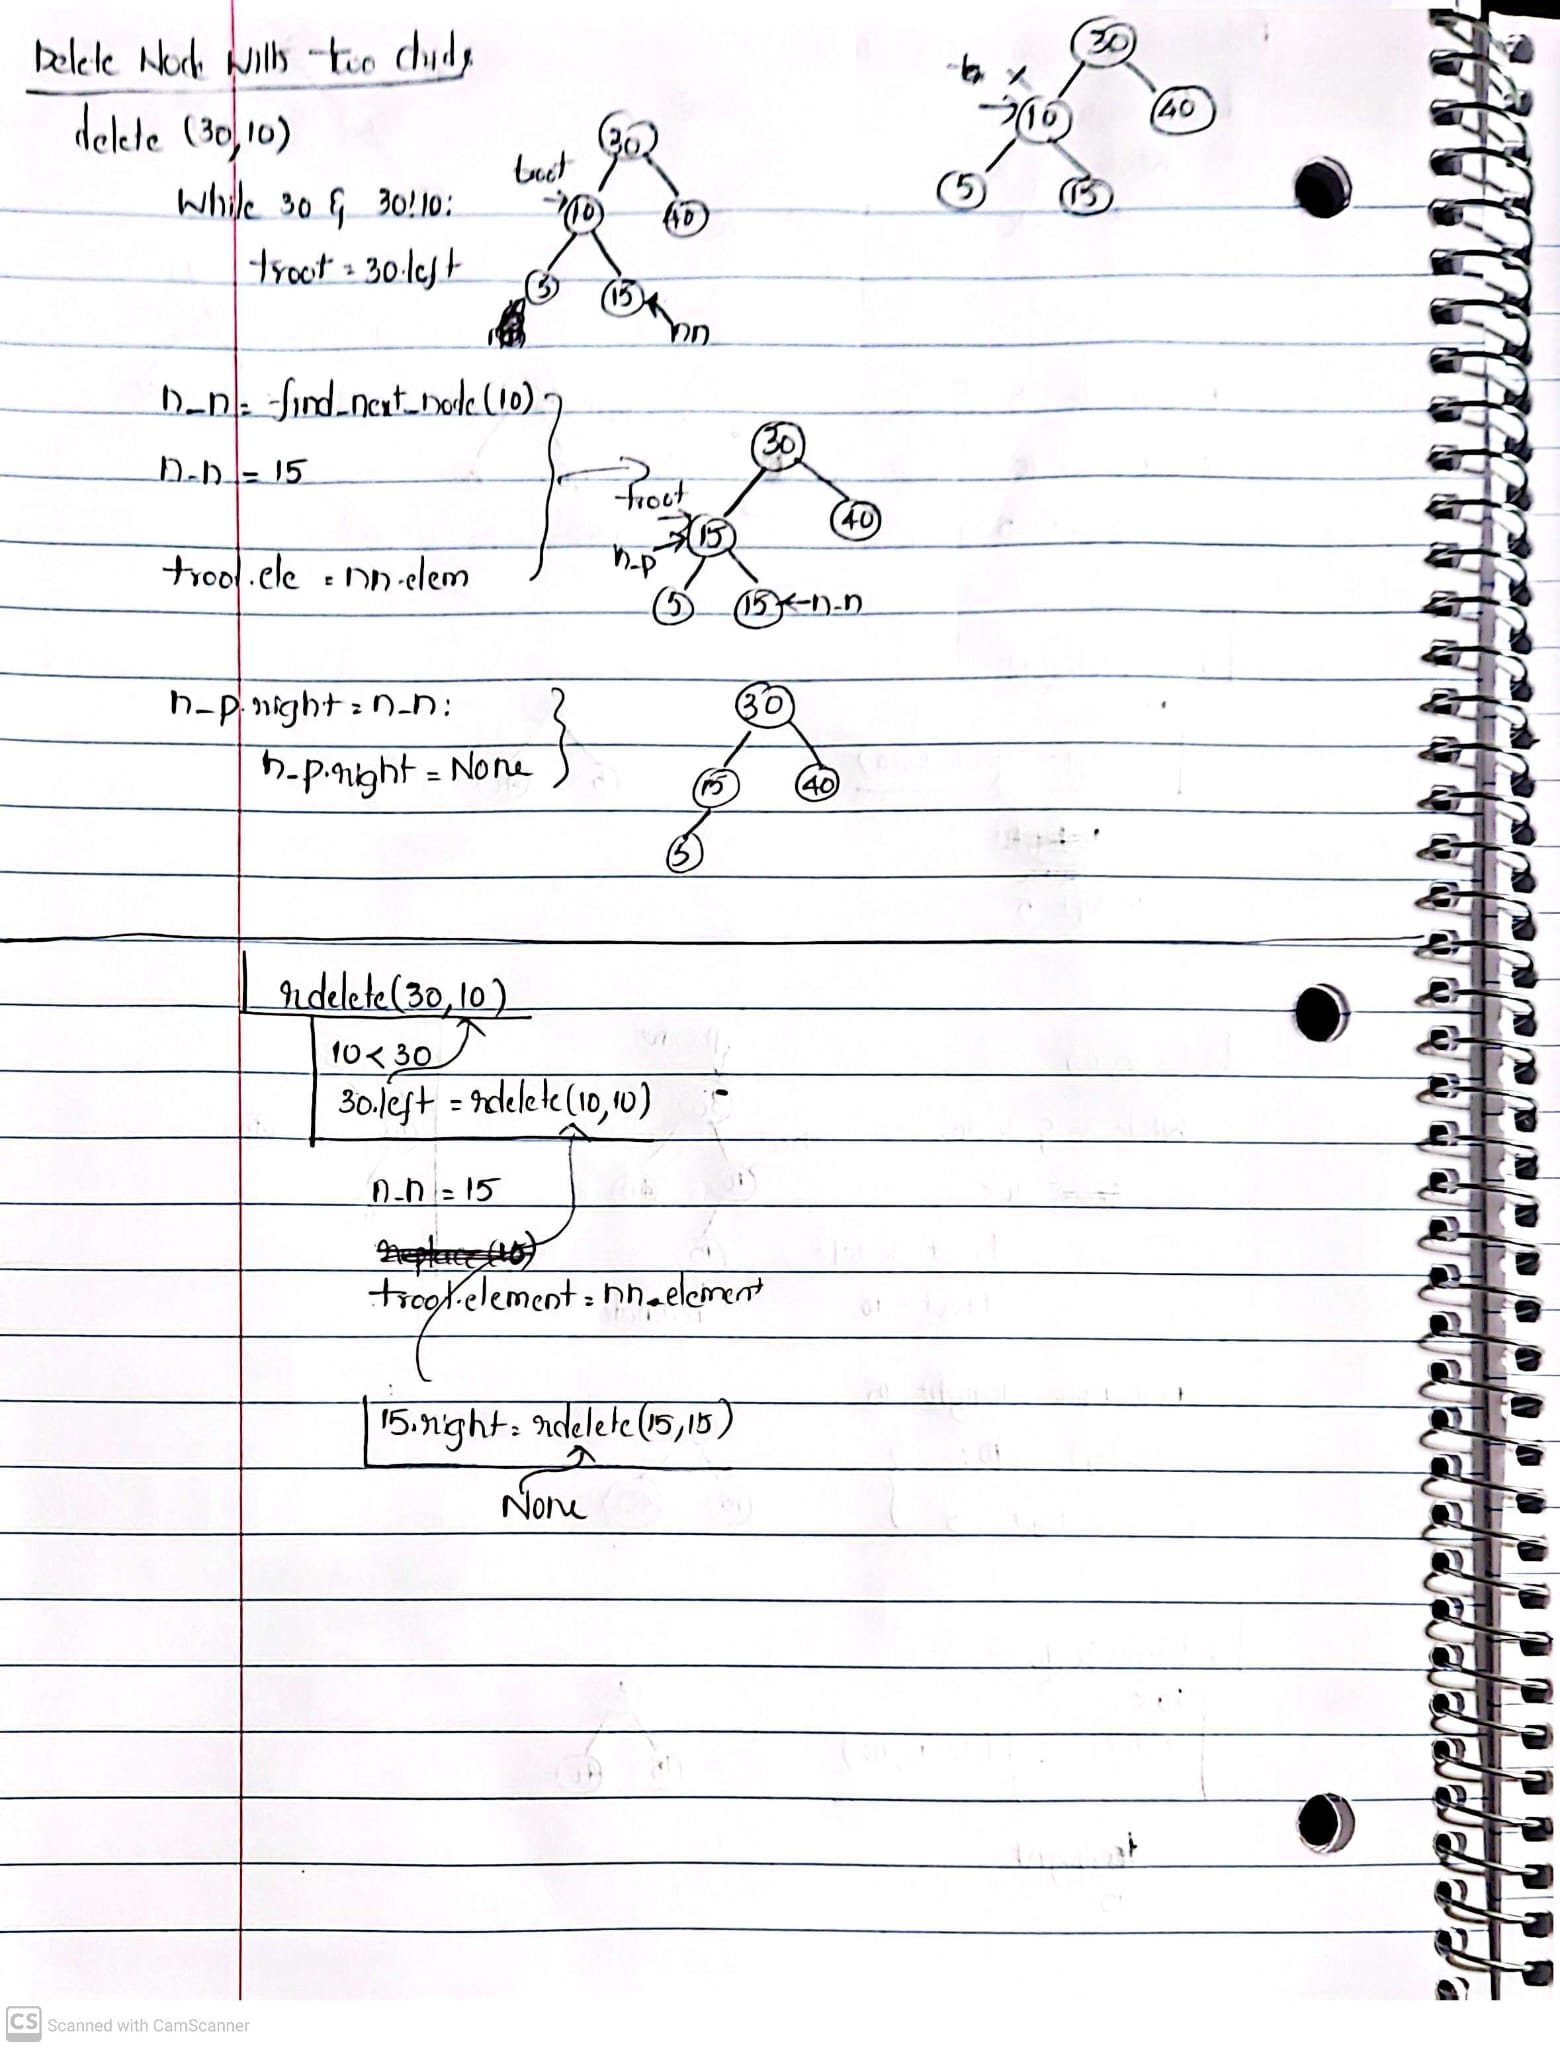 Delete Node With two childs
delete (30,10)
While 30 & 30!10:
troot = 30.left
troot
30
10
40
5
15
nn
30
10
40
5
15
n_n = find_next_node(10)
n-n = 15
troot.ele = nn.elem
30
troot
n-p
15
40
5
15
n-n
n_p.right = n_n:
n_p.right = None
30
15
40
5
rdelete(30,10)
10 < 30
30.left = rdelete(10,10)
n_n = 15
replace (10)
troot.element = nn.element
15.right = rdelete(15,15)
None
CS Scanned with CamScanner